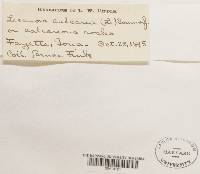 HERBARIUM OF L. W. RIDDLE
Lecanora calcarea (L.) Sommerf.
on calcareous rocks
Fayette, Iowa. Oct. 28, 1895
Coll. Bruce Fink
HARVARD
UNIVERSITY